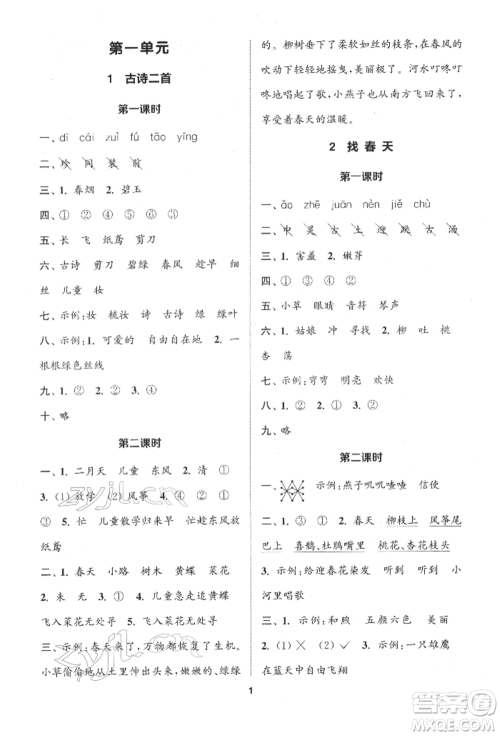 第一单元
1 古诗二首
第一课时
一、dī cái zuì fú tāo yīng
二、珍 闻 装 韵
三、1. 春烟 2. 碧玉
四、① ② ④ ③
五、长 飞 纸鸢 剪刀
六、古诗 剪刀 碧绿 春风 趁早 细
丝 儿童 妆
七、示例：妆 梳妆 诗 诗词 绿 绿叶
八、示例：1. 可爱的 自由自在地 2. 一
根根绿色丝线
九、1. ② 2. ③ 3. ④
十、略
第二课时
一、1. 二月天 儿童 东风 2. 清 ① ①
3. (1) 放学 (2) 风筝 4. ① ③ ② ④
② ③ 5. 忙 儿童散学归来早 忙趁东风放
纸鸢
二、1. 春天 小路 树木 黄蝶 菜花
2. 朱 无 3. ② 4. 儿童急走追黄蝶
飞入菜花无处寻 5. 儿童急走追黄蝶
飞入菜花无处寻
三、示例：春天来了，万物复苏有了生机。
小草偷偷地从土里钻出来，嫩嫩的、绿绿
的。柳树垂下了柔软如丝的枝条，在春风的
吹动下轻轻地摇晃，美丽极了。河水叮咚叮
咚地唱起了歌，小燕子也从南方飞了回来，
享受着春天的温暖。
2 找春天
第一课时
一、āo zhē juān nèn jiě chù
二、
三、1. 害羞 2. 嫩芽
四、① ③ ②
五、小草 眼睛 音符 琴声
六、1. 姑娘 寻找 2. 柳 吐 桃
杏 荡
七、示例：弯弯 明亮 欢快
八、① ② ① ②
九、略
第二课时
一、1. 示例：燕子叽叽喳喳 信使
2. ④ ③ ① ② 3. 春天 柳枝上 风筝尾
巴上 喜鹊、杜鹃嘴里 桃花、杏花枝头
二、示例：给迎春花染发 听到 听到 小
河里唱歌
三、1. 示例：和煦 五颜六色 美丽
2. (1) × (2) ✓ 3. ③ 4. 示例：一只雄鹰
在蓝天中自由飞翔
1
zyjl.cn
答案圈